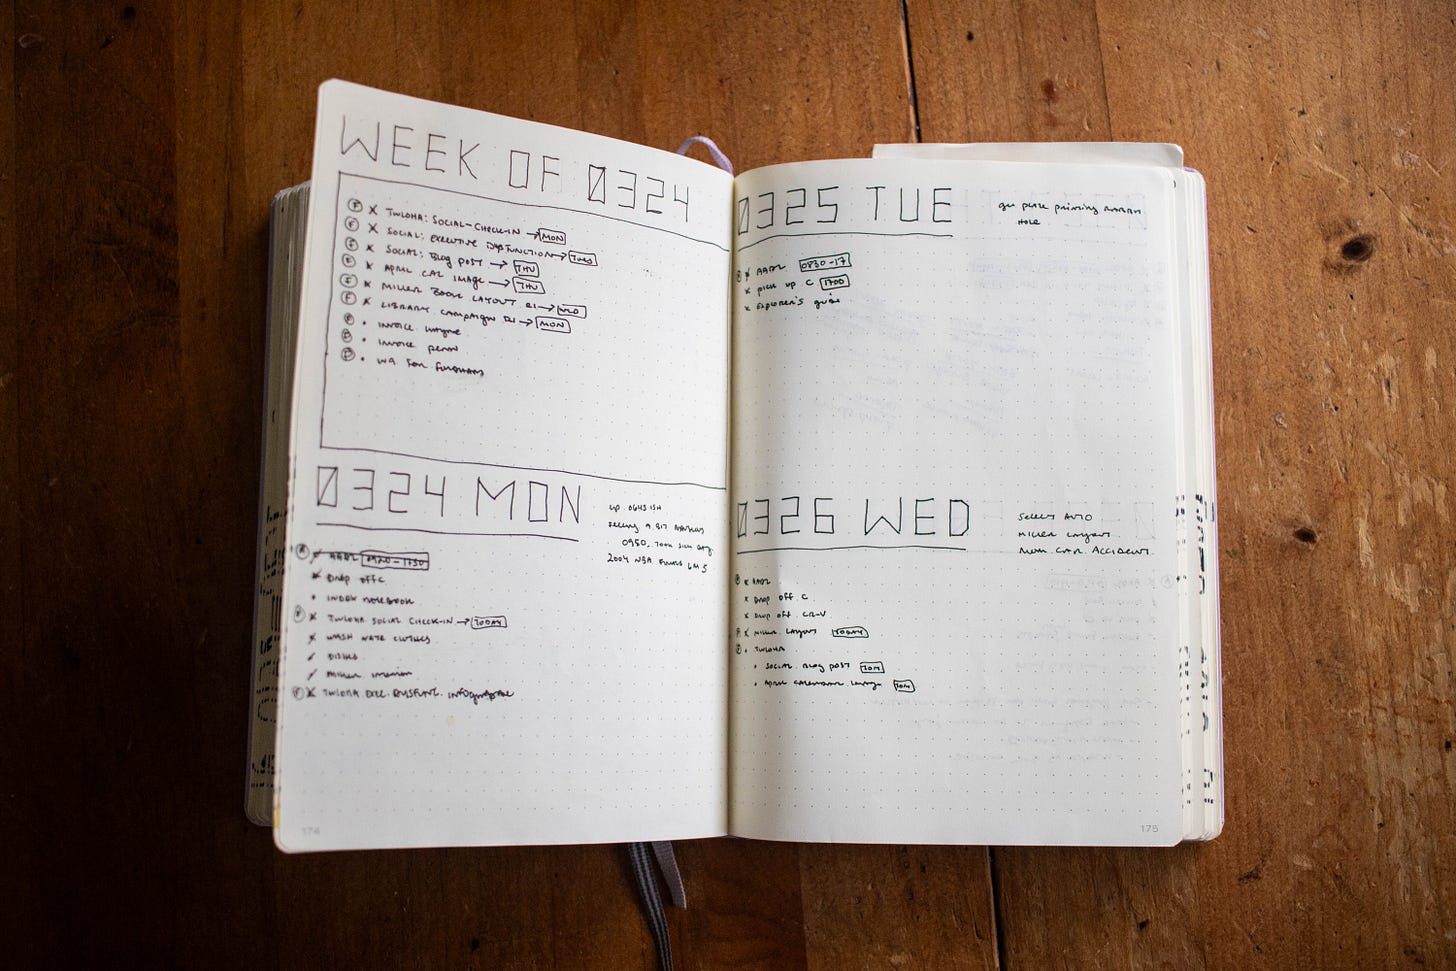 WEEK OF 0324
P X TWLOHA: SOCIAL-CHECK-IN → MON
P X SOCIAL: EXECUTIVE DYSFUNCTION → TUES
P X SOCIAL: BLOG POST → THU
P X APRIL CAL IMAGE → THU
P X MILLER BOOK LAYOUT R1 → WED
P X LIBRARY CAMPAIGN R1 → MON
P • INVOICE WAYNE
P • INVOICE PENN
P • W9 FOR
0324 MON
UP 0645 ISH
0950,
2004 NBA FINALS GM 5
DROP OFF C
• INDEX NOTEBOOK
P X TWLOHA SOCIAL CHECK-IN → TODAY
WASH CLOTHES
DISHES
MILLER
P X TWLOHA EXEC. DYSFUNC. INFOGRAPHIC
174
0325 TUE
HOLE
AARL 0830-17
X PICK UP C 1700
X EXPLORER'S GUIDE
0326 WED
SELECT AUTO
MILLER LAYOUT
MOM CAR ACCIDENT
X AARL
X DROP OFF C
X DROP OFF CR-V
P X MILLER LAYOUT TODAY
P • TWLOHA
• SOCIAL BLOG POST TOM
• APRIL CALENDAR IMAGE TOM
175